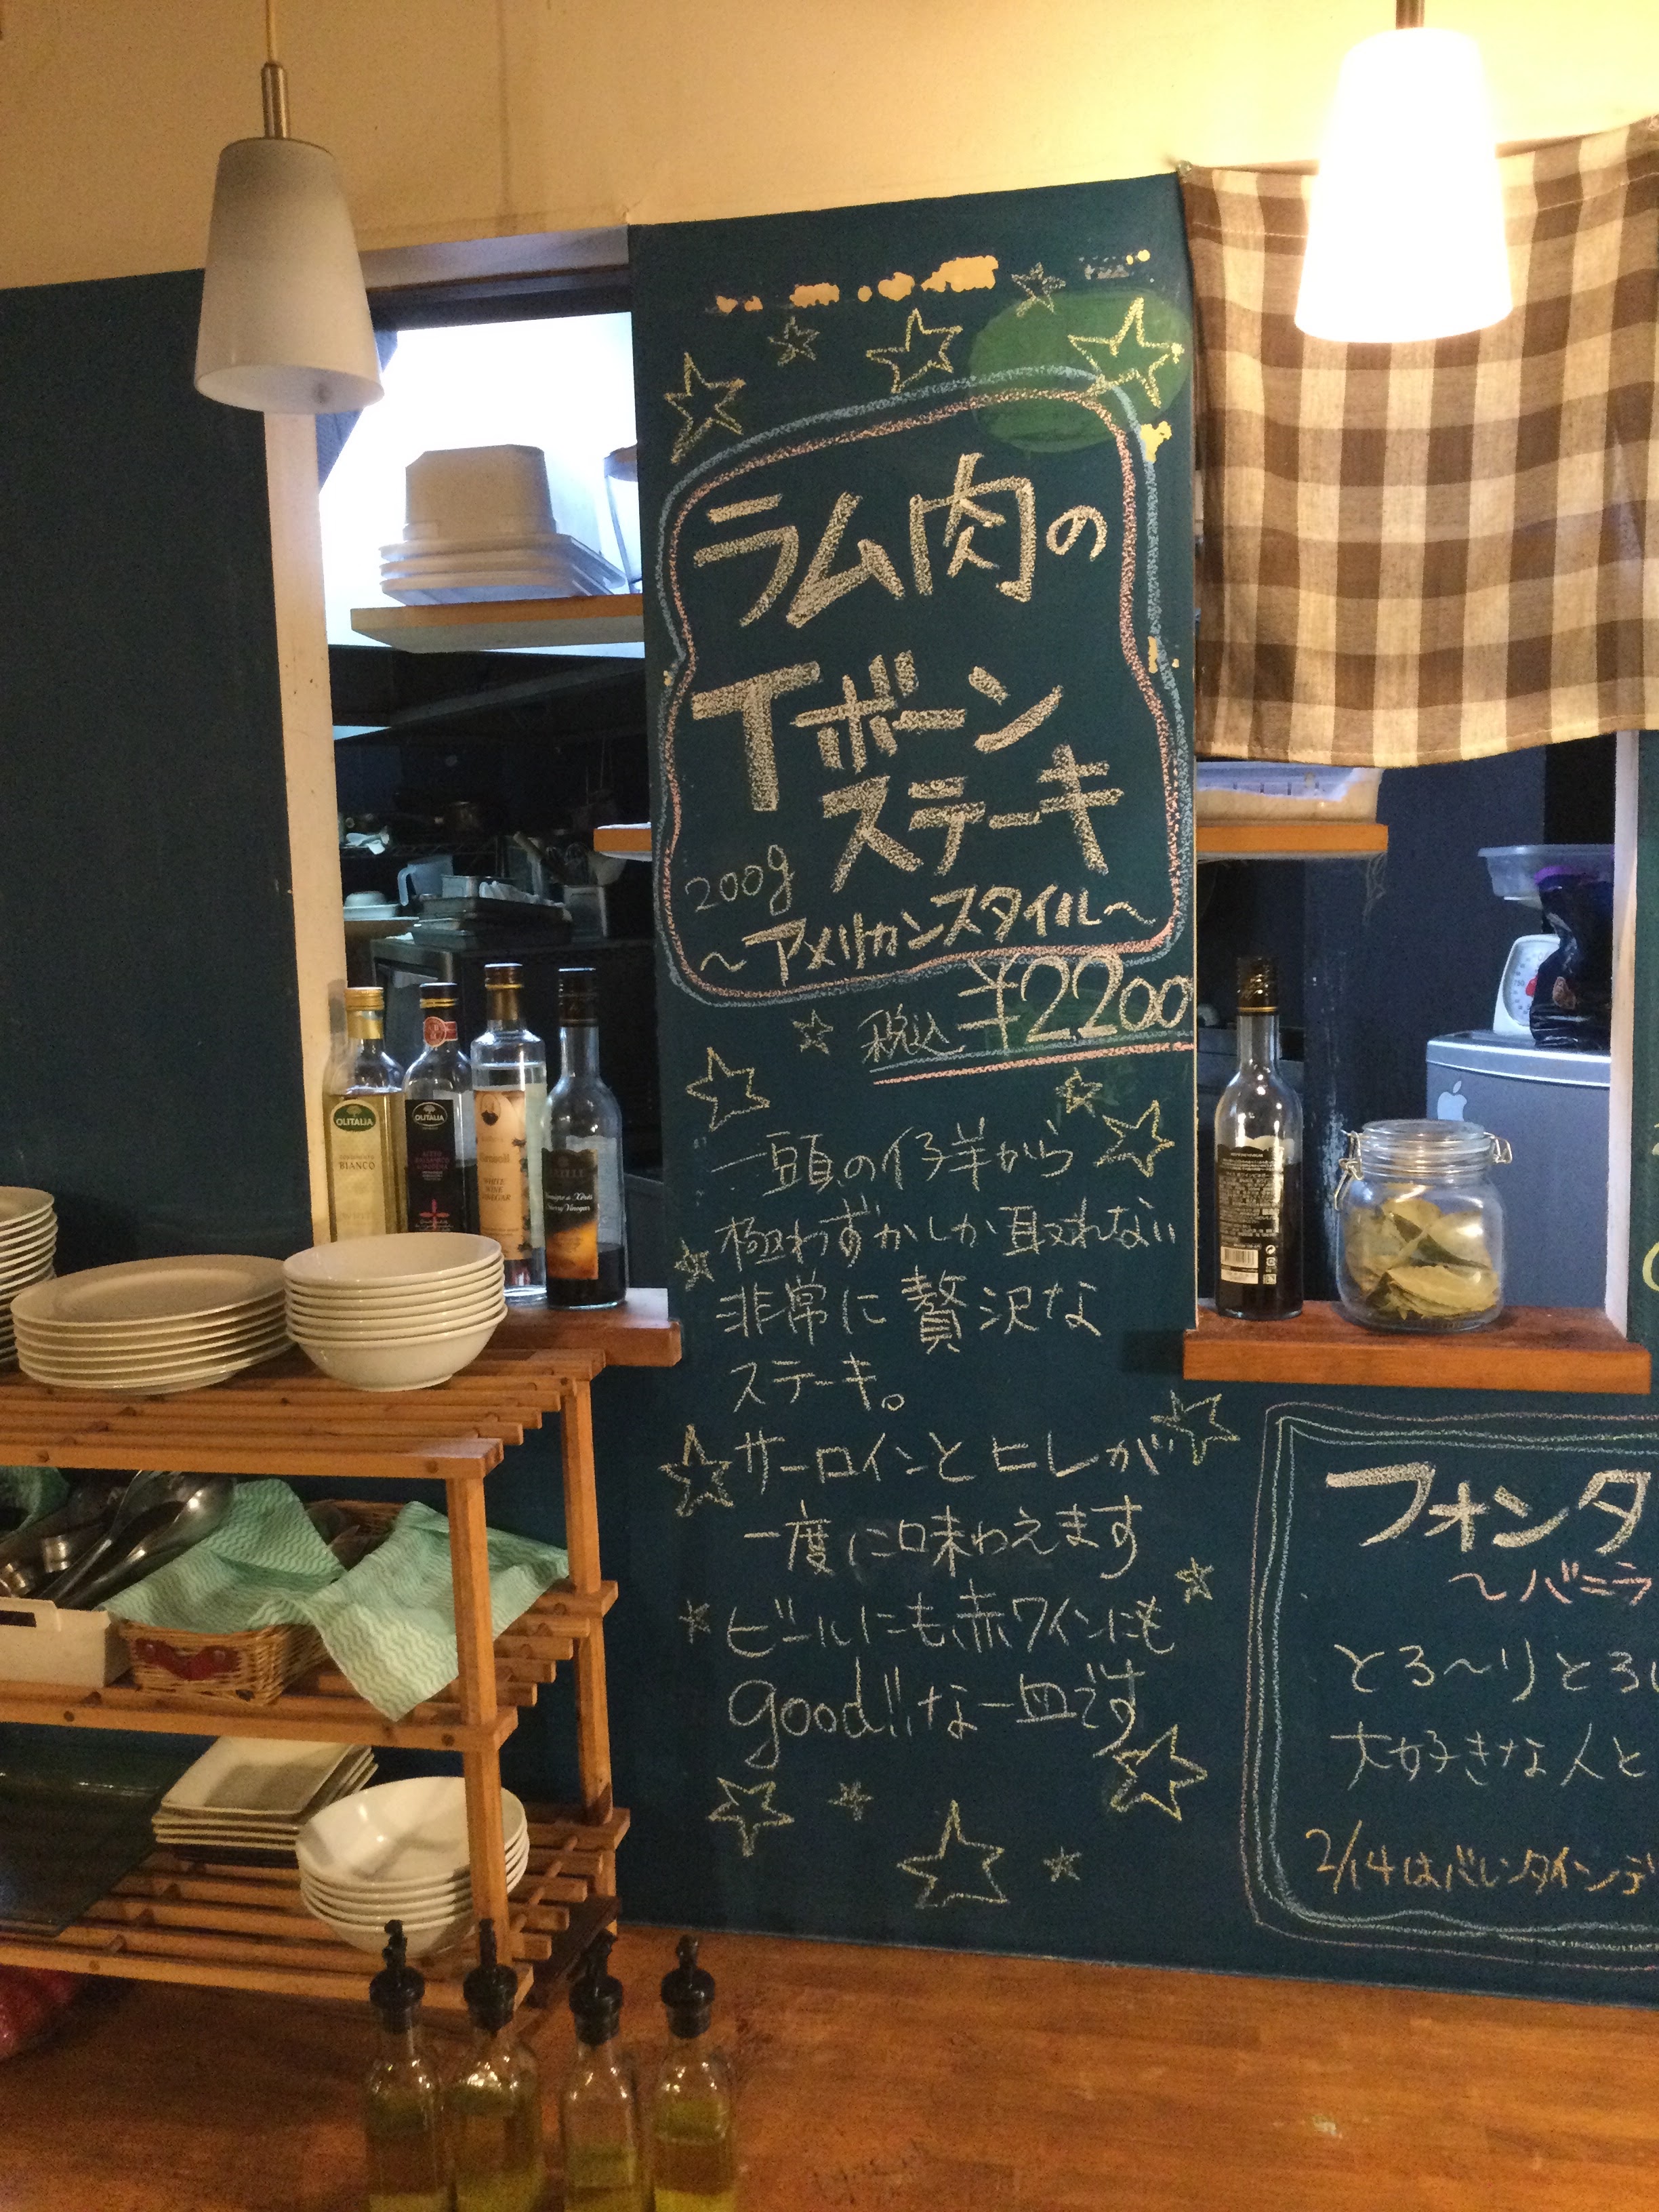 ラム肉の
Tボーン
ステーキ
200g
～アメリカンスタイル～
税込 ¥2200
一頭の仔羊から
極わずかしか取れない
非常に贅沢な
ステーキ。
サーロインとヒレが
一度に味わえます
ビールにも赤ワインにも
good!!な一皿です
OLITALIA
BIANCO
OLITALIA
WHITE WINE
VINEGAR
Sherry Vinegar
フォンダ
～バニラ
とろ～りとろ
大好きな人と
2/14はバレンタインデ